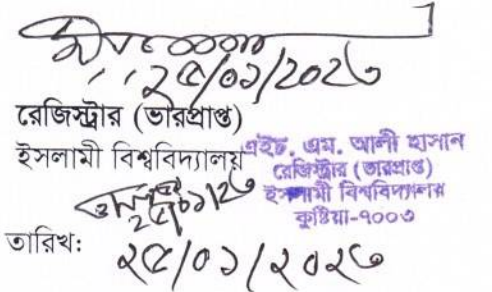 ২৫/০১/২০২৩
রেজিস্ট্রার (ভারপ্রাপ্ত)
ইসলামী বিশ্ববিদ্যালয়
এইচ. এম. আলী হাসান
রেজিস্ট্রার (ভারপ্রাপ্ত)
ইসলামী বিশ্ববিদ্যালয়
কুষ্টিয়া-৭০০৩
২৫/০১/২৩
তারিখঃ ২৫/০১/২০২৩